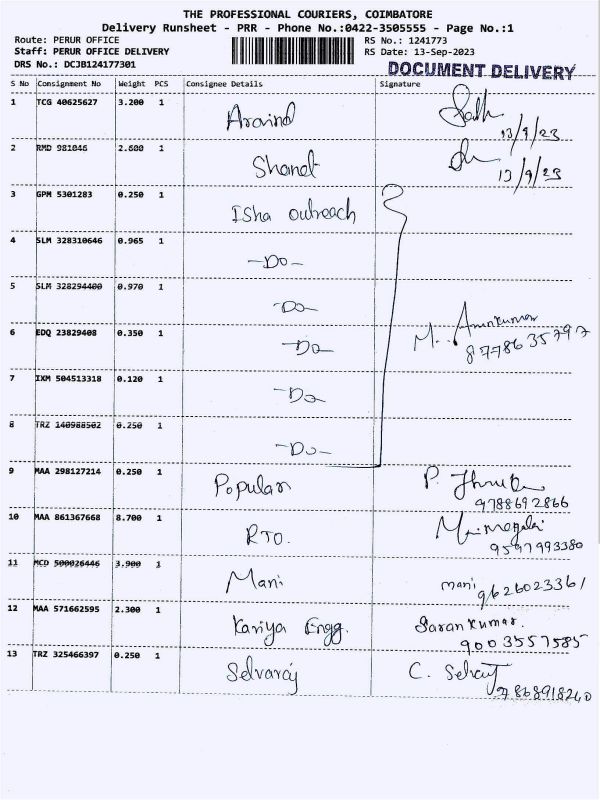 THE PROFESSIONAL COURIERS, COIMBATORE
Delivery Runsheet - PRR - Phone No.:0422-3505555 - Page No.:1
Route: PERUR OFFICE RS No.: 1241773
Staff: PERUR OFFICE DELIVERY RS Date: 13-Sep-2023
DRS No.: DCJB124177301 DOCUMENT DELIVERY
S No Consignment No Weight PCS Consignee Details Signature
1 TCG 40625627 3.200 1 Aravind
13/9/23
2 RMD 981046 2.600 1
13/9/23
3 GPM 5301283 0.250 1 Isha outreach
4 SLM 328310646 0.965 1 -Do-
5 SLM 328294400 0.970 1 -Do-
6 EDQ 23829408 0.350 1 -Do- M. Arunkumar
8778635797
7 IXM 504513318 0.120 1 -Do-
8 TRZ 140988502 0.250 1 -Do-
9 MAA 298127214 0.250 1 Popular P.
9788692866
10 MAA 861367668 8.700 1 RTO.
9597993380
11 MCD 500026446 3.900 1 Mani mani 9626023361
12 MAA 571662595 2.300 1 Kariya Engg. Sarankumar.
9003557585
13 TRZ 325466397 0.250 1 Selvaraj C.
7868918240